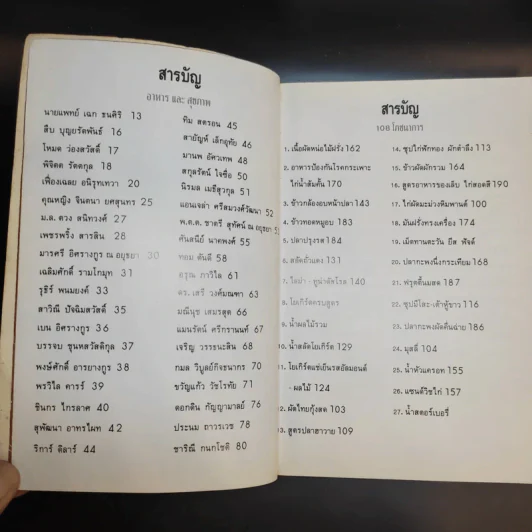 สารบัญ
อาหาร และ สุขภาพ
นายแพทย์ เฉก ธนะสิริ 13
สืบ บุญยรัตพันธ์ 16
โหมด ว่องสวัสดิ์ 17
พิจิตต รัตตกุล 18
เฟื่องเฉลย อนิรุทเทวา 20
คุณหญิง จินตนา ยศสุนทร 25
ม.ล. ตวง สนิทวงศ์ 27
เพชรพริ้ง สารสิน 28
มารศรี อิศรางกูร ณ อยุธยา 30
เฉลิมศักดิ์ รามโกมุท 31
รุธีร์ พนมยงค์ 33
สาวิณี ปัจฉิมสวัสดิ์ 35
เบน อิศรางกูร 36
บรรจบ ชุนหสวัสดิกุล 38
พงษ์ศักดิ์ อารยางกูร 38
พรวิไล คาร์ร์ 39
ชินกร ไกรลาศ 40
สุพัฒนา อาทรไผท 42
ริการ์ ดีลาร์ 44
ทิม สตรอน 45
สายัญห์ เล็กอุทัย 46
มานพ อัศวเทพ 48
สกุลรัตน์ ใจซื่อ 50
นิรมล เมธีสุวกุล 51
แอนเจล่า ศรีสมวงศ์วัฒนา 52
พ.ต.ต. ชาตรี สุทัศน์ ณ อยุธยา
ศันสนีย์ นาคพงศ์ 55
ทอม ดันดี 58
ดรุณ ภาวิไล 61
ดร. เสรี วงศ์มณฑา 63
มณีนุช เสมรสุต 66
แมนรัตน์ ศรีกรานนท์ 68
เจริญ วรรธนะสิน 68
กมล วิบูลย์กิจธนากร 70
ขวัญแก้ว วัชโรทัย 71
ดอกดิน กัญญามาลย์ 76
ประนม ถาวรเวช 78
ชาริณี กนกโชติ 80
สารบัญ
108 โภชนาการ
1. เนื้อผัดหน่อไม้ฝรั่ง 162
2. อาหารป้องกันโรคกระเพาะ
ไก่น้ำส้มคั้น 170
3. ข้าวกล้องอบหน้าปลา 143
4. ข้าวทอดหมูอบ 183
5. ปลาปรุงรส 184
6. สลัดถั่วแดง 131
7. ไอค่า - ทูน่าผัดโรย 140
8. โยเกิร์ตครบสูตร
9. น้ำผลไม้รวม
10. น้ำสลัดโยเกิร์ต 129
11. โยเกิร์ตแช่เย็นรสอัลมอนด์
- ผลไม้ 124
12. ผัดไทยกุ้งสด 103
13. สูตรปลาฮาวาย 109
14. ซุปไก่ฟักทอง ผักตำลึง 113
15. ข้าวผัดผักรวม 164
16. สูตรอาหารของเลิบ ไก่สอดสี 190
17. ไก่ผัดมะม่วงหิมพานต์ 180
18. มันฝรั่งทรงเครื่อง 174
19. เม็ดทานตะวัน ยีส พัฟต์
20. ปลากะพงนึ่งกระเทียม 168
21. ฟรุตชิ้นมสด 187
22. ซุปมิโสะ - เต้าหู้ขาว 116
23. ปลากะพงผัดคื่นฉ่าย 186
24. มุสลี่ 104
25. น้ำหัวแครอท 155
26. แซนด์วิชไก่ 157
27. น้ำสตอร์เบอรี่